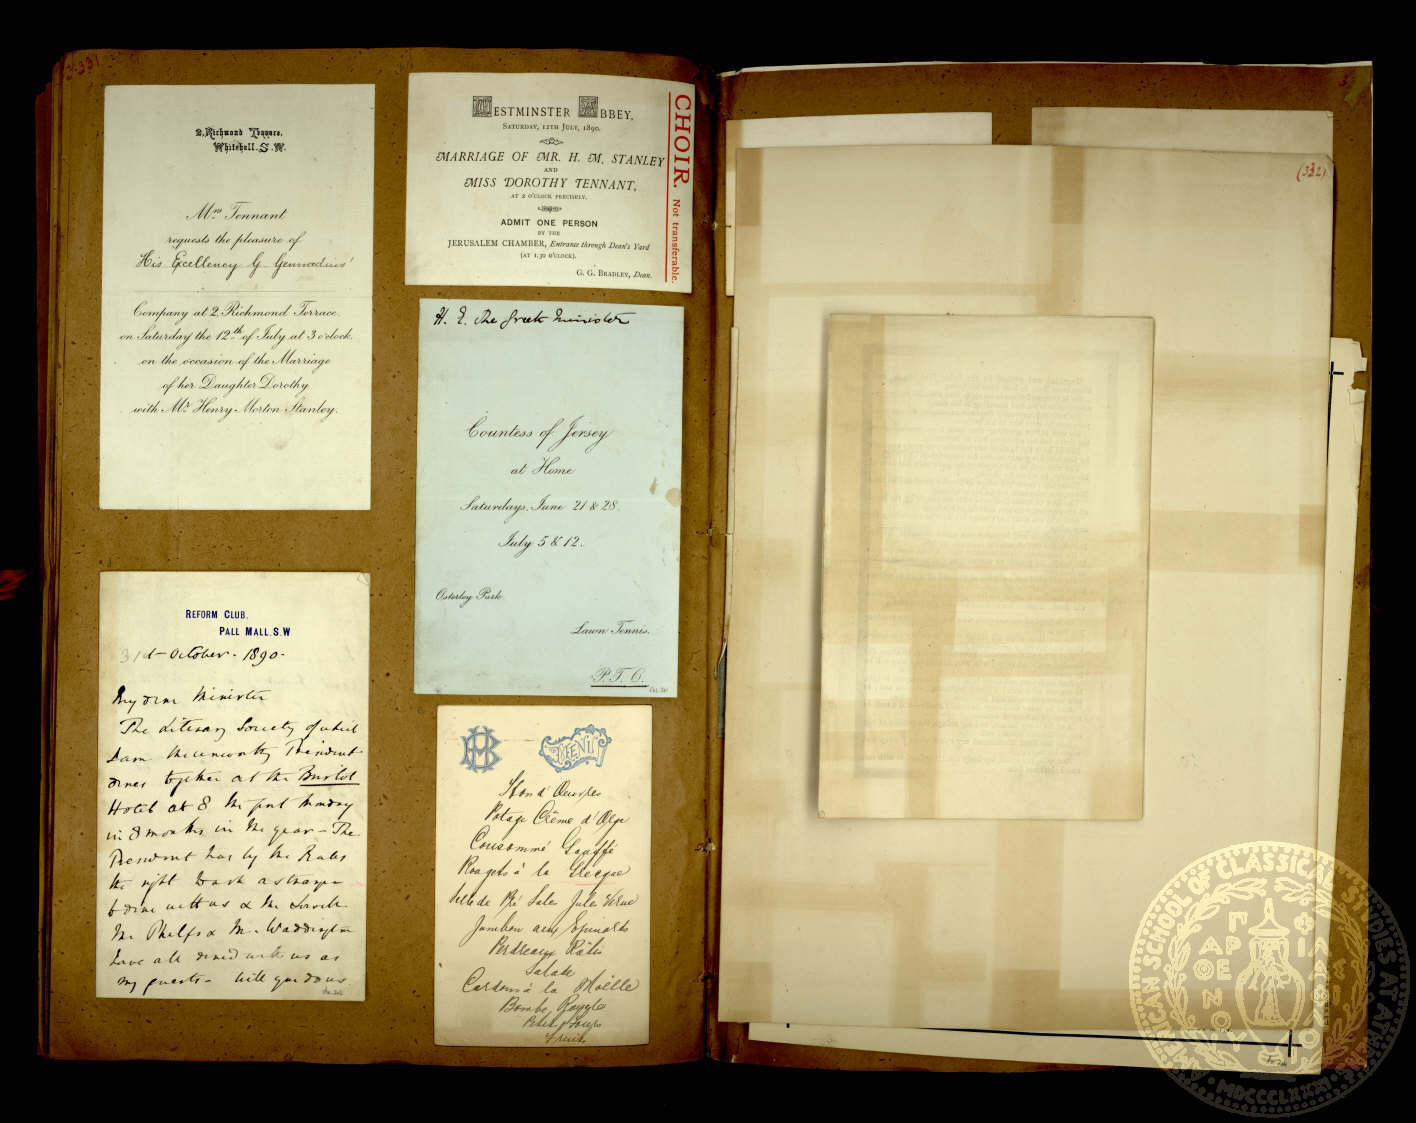 331
2, Richmond Terrace,
Whitehall. S.W.
Mrs Tennant
requests the pleasure of
His Excellency G. Gennadius'
Company at 2, Richmond Terrace,
on Saturday the 12th of July at 3 o'clock,
on the occasion of the Marriage
of her Daughter Dorothy
with Mr Henry Morton Stanley.
WESTMINSTER ABBEY,
SATURDAY, 12TH JULY, 1890.
MARRIAGE OF MR. H. M. STANLEY
AND
MISS DOROTHY TENNANT,
AT 2 O'CLOCK PRECISELY.
ADMIT ONE PERSON
BY THE
JERUSALEM CHAMBER, Entrance through Dean's Yard
(AT 1.30 O'CLOCK).
G. G. BRADLEY, Dean.
CHOIR. Not transferable.
H. E. The Greek Minister
Countess of Jersey
at Home
Saturdays, June 21 & 28.
July 5 & 12.
Osterley Park
Lawn Tennis.
REFORM CLUB,
PALL MALL. S.W
31st October. 1890.
My dear Minister
The Literary Society of which
I am the unworthy President
dines together at the Bristol
Hotel at 8 the first Monday
in 8 months in the year – The
President has by the Rules
the right to ask a stranger
to dine with us & Mr Lowell
Mr Phelps & Mr Waddington
have all dined with us as
my guests – Will you do us
MENU
Hors d'Oeuvres
Potage Crême d'Orge
Consommé
Rougets à la
Selle de Pré Salé Jules Verne
Jambon aux Epinards
Perdreaux Rôtis
Salade
Cardons à la Moëlle
Bombe
Petits Fours
Fruits
(332)
AMERICAN SCHOOL OF CLASSICAL STUDIES AT ATHENS
MDCCCLXXXI